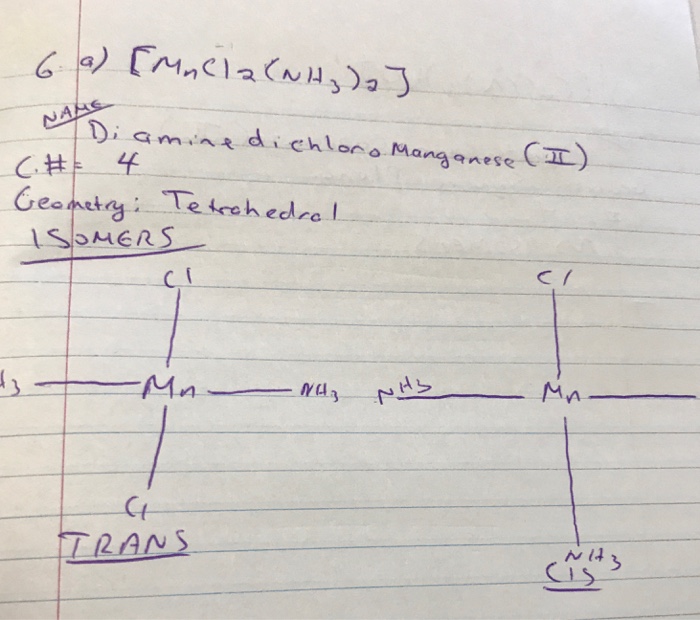 6 a) [MnCl2(NH3)2]
NAME
Diamine dichloro Manganese (II)
C.#= 4
Geometry: Tetrahedral
ISOMERS
Cl Cl
H3 Mn NH3 NH3 Mn
Cl
TRANS
NH3
CIS